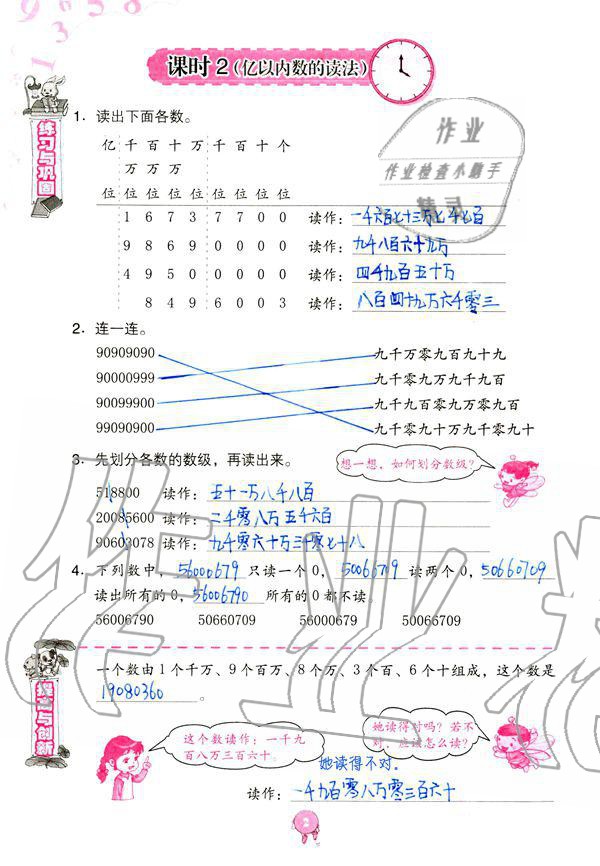 课时2(亿以内数的读法)
练习与巩固
1. 读出下面各数。
亿 千 百 十 万 千 百 十 个
万 万 万
位 位 位 位 位 位 位 位 位
1 6 7 3 7 7 0 0 读作:一千六百七十三万七千七百
9 8 6 9 0 0 0 0 读作:九千八百六十九万
4 9 5 0 0 0 0 0 读作:四千九百五十万
8 4 9 6 0 0 3 读作:八百四十九万六千零三
作业
作业检查小助手
精灵
2. 连一连。
90909090 九千万零九百九十九
90000999 九千零九万九千九百
90099900 九千九百零九万零九百
99090900 九千零九十万九千零九十
3. 先划分各数的数级,再读出来。
想一想,如何划分数级?
518800 读作:五十一万八千八百
20085600 读作:二千零八万五千六百
90603078 读作:九千零六十万三千零七十八
4. 下列数中,56000679只读一个0,50066709读两个0,50660709
读出所有的0,56006790所有的0都不读。
56006790 50660709 56000679 50066709
综合与创新
一个数由1个千万、9个百万、8个万、3个百、6个十组成,这个数是
19080360。
这个数读作:一千九
百八万三百六十。
她读得对吗?若不
对,应该怎么读?
她读得不对.
读作:一千九百零八万零三百六十
2